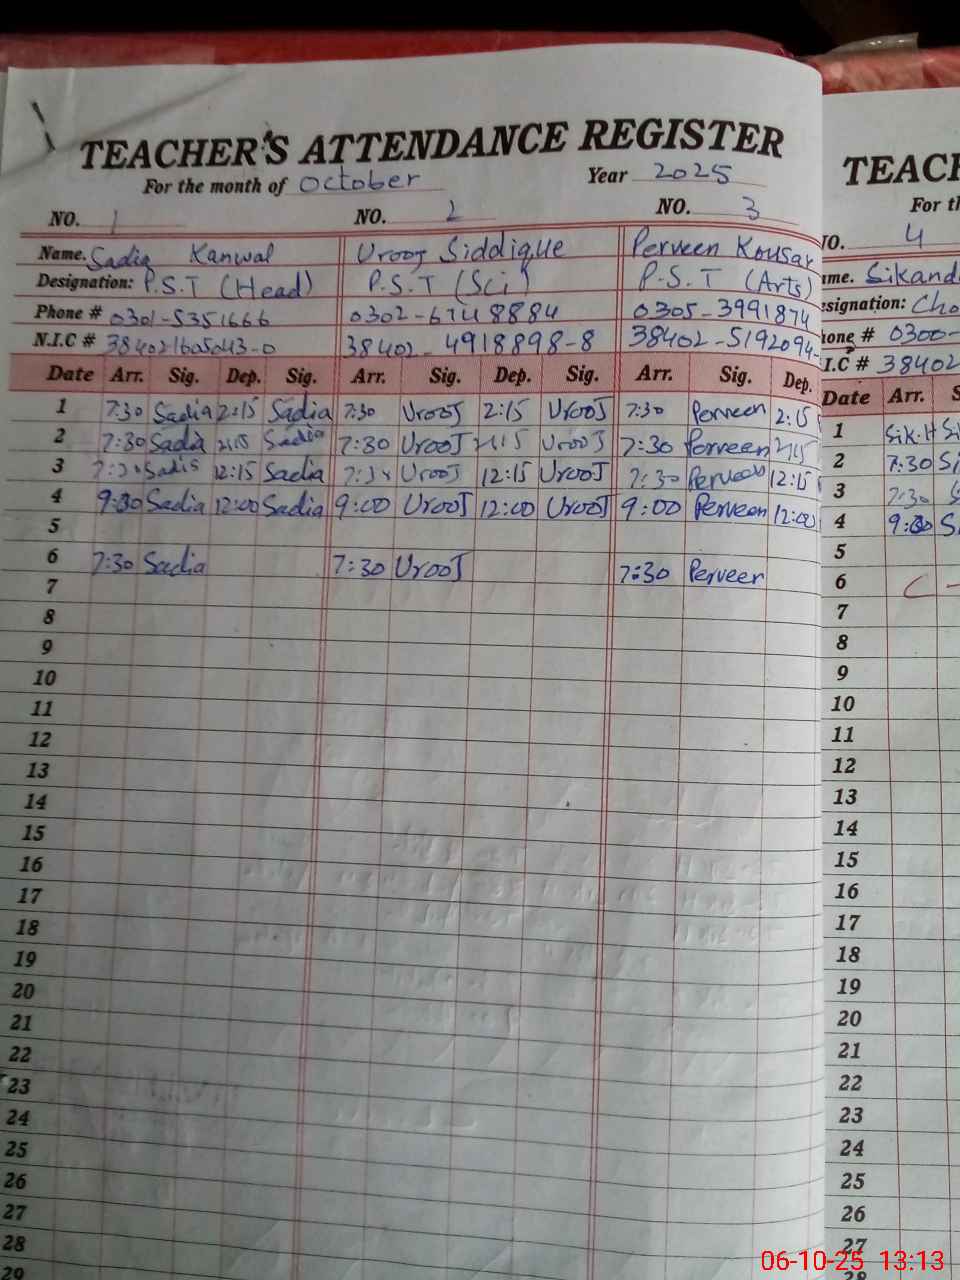 TEACHER'S ATTENDANCE REGISTER
For the month of October Year 2025
NO. 1 NO. 2 NO. 3
Name. Sadia Kanwal Urooj Siddique Perveen Kousar
Designation: P.S.T (Head) P.S.T (Sci) P.S.T (Arts)
Phone # 0301-5351666 0302-6748884 0305-3991874
N.I.C # 384021605043-0 38402-4918898-8 38402-5192094-
Date Arr. Sig. Dep. Sig. Arr. Sig. Dep. Sig. Arr. Sig. Dep.
1 7:30 Sadia 2:15 Sadia 7:30 Urooj 2:15 Urooj 7:30 Perveen 2:15
2 7:30 Sadia 2:15 Sadia 7:30 Urooj 2:15 Urooj 7:30 Perveen 2:15
3 7:30 Sadia 12:15 Sadia 7:30 Urooj 12:15 Urooj 7:30 Perveen 12:15
4 9:30 Sadia 12:00 Sadia 9:00 Urooj 12:00 Urooj 9:00 Perveen 12:00
5
6 7:30 Sadia 7:30 Urooj 7:30 Perveen
7
8
9
10
11
12
13
14
15
16
17
18
19
20
21
22
23
24
25
26
27
28
29
TEACH
For th
NO. 4
ame. Sikand
esignation: Cho
hone # 0300-
N.I.C # 38402
Date Arr. S
1 Sik.H Si
2 7:30 Si
3 7:30
4 9:00 S
5
6
7
8
9
10
11
12
13
14
15
16
17
18
19
20
21
22
23
24
25
26
27
28
06-10-25 13:13